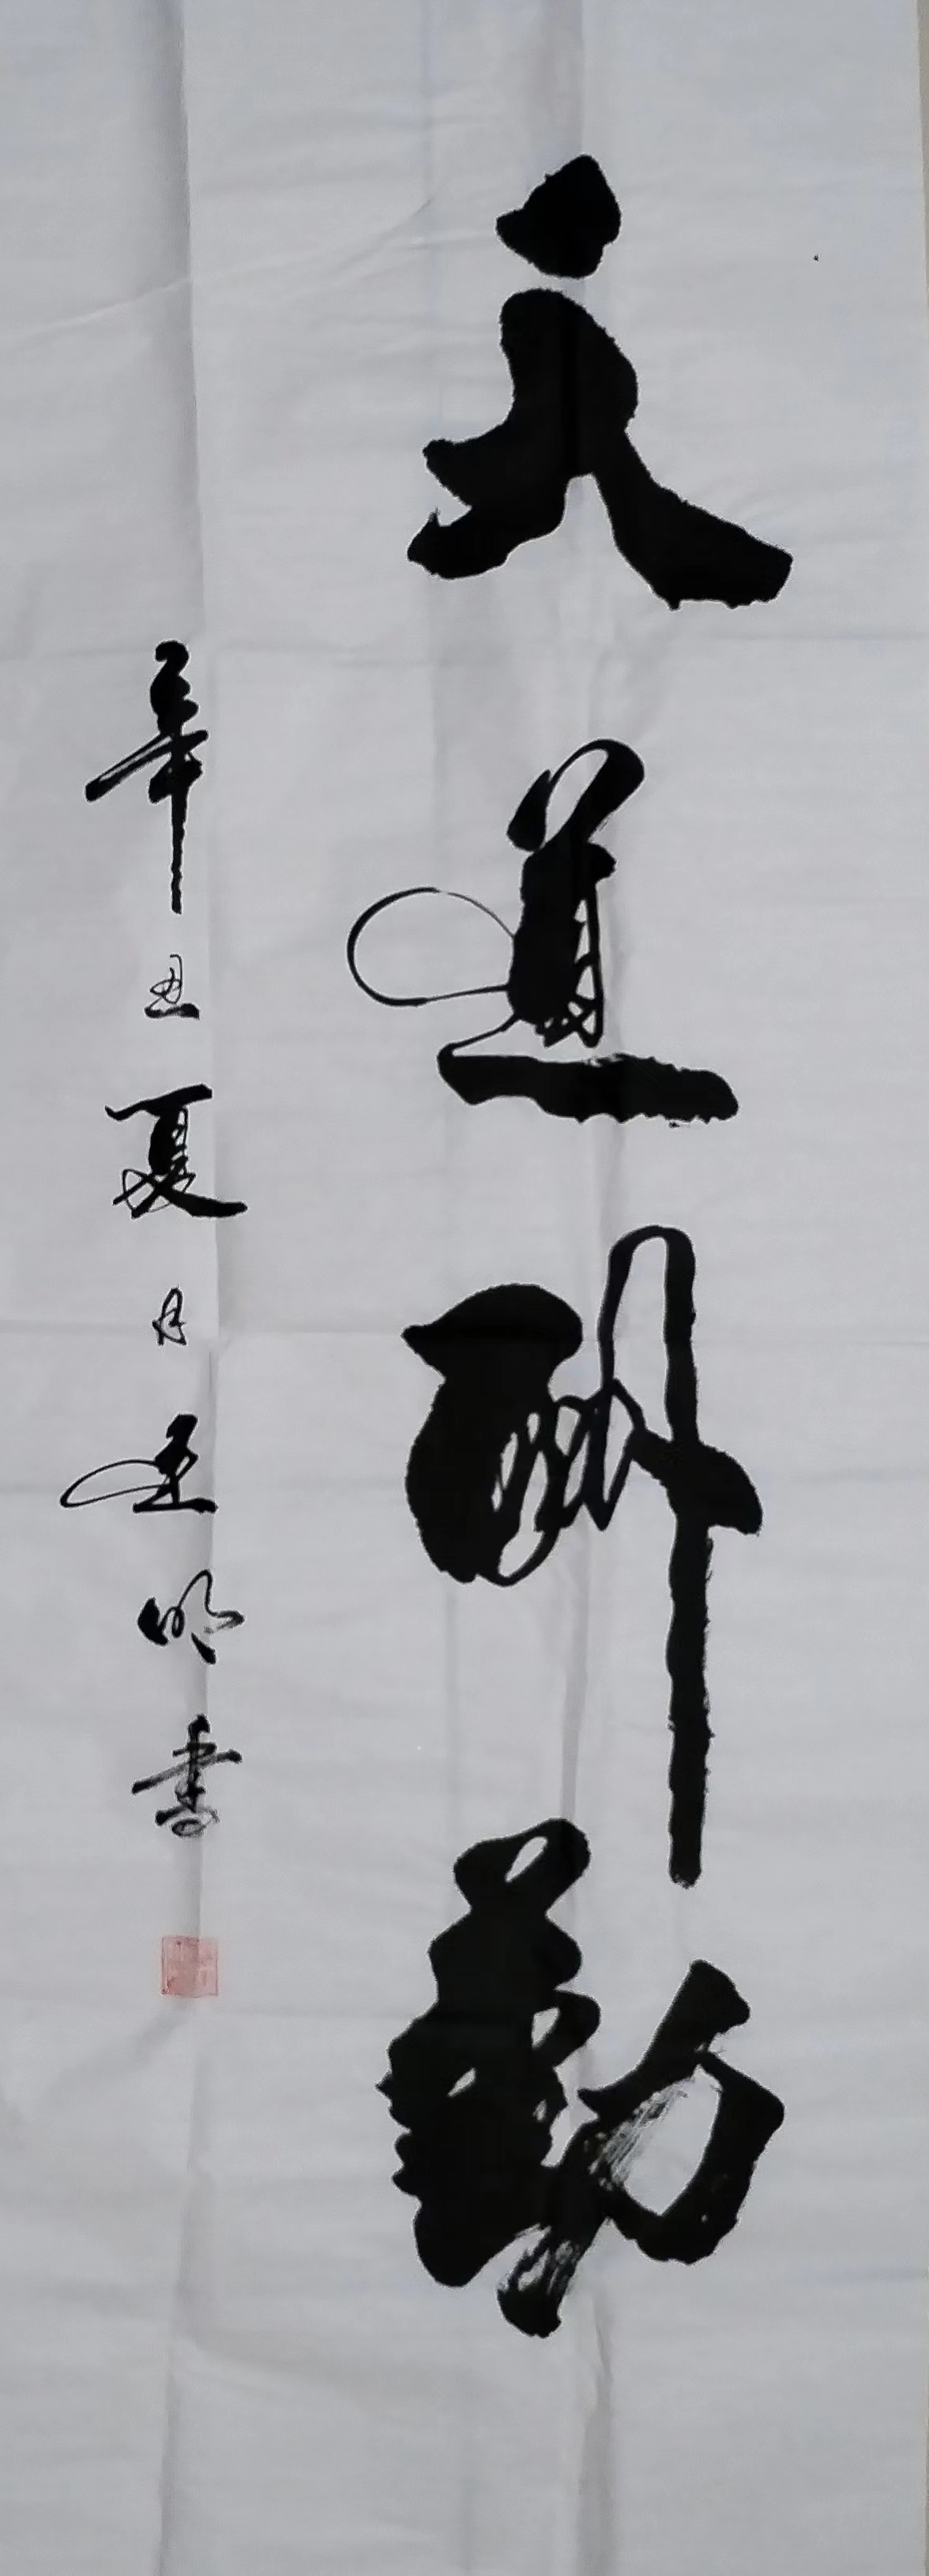 天道酬勤
辛丑夏月建明书